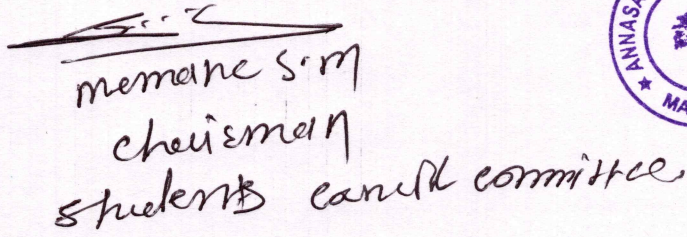 memane S.M
chairman
students council committee
ANNASA
MA